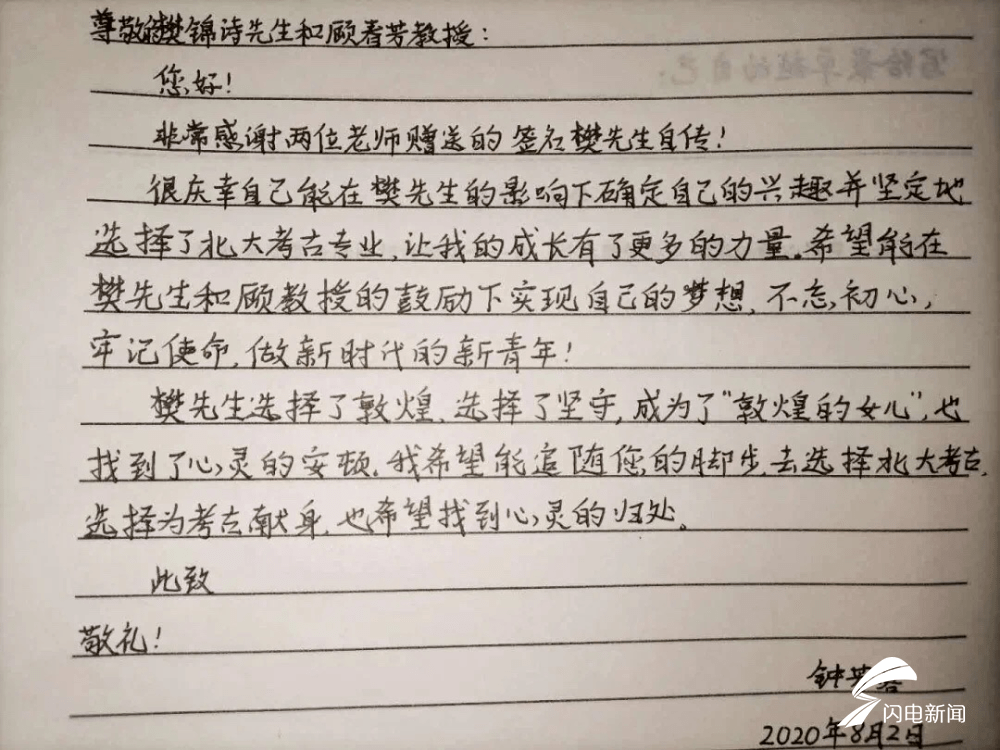 尊敬的樊锦诗先生和顾春芳教授：
您好！
非常感谢两位老师赠送的签名樊先生自传！
很庆幸自己能在樊先生的影响下确定自己的兴趣并坚定地
选择了北大考古专业，让我的成长有了更多的力量。希望能在
樊先生和顾教授的鼓励下实现自己的梦想，不忘初心，
牢记使命，做新时代的新青年！
樊先生选择了敦煌，选择了坚守，成为了“敦煌的女儿”，也
找到了心灵的安顿。我希望能追随您的脚步，去选择北大考古，
选择为考古献身，也希望找到心灵的归处。
此致
敬礼！
钟芳蓉
闪电新闻
2020年8月2日